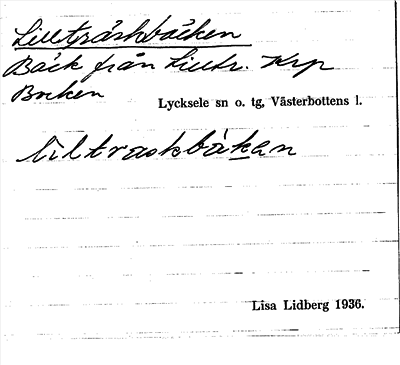 Lillträskbäcken
Bäck från Lilltr. Krp
Boken
Lycksele sn o. tg, Västerbottens l.
lìltraskbàkan
Lisa Lidberg 1936.